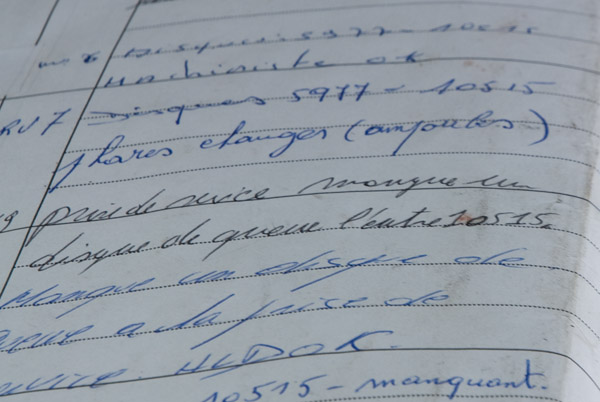 Disques 5977 - 10515
Machiniste OK
RV7 Disques 5977 - 10515
phares changés (ampoules)
prise de service manque un
disque de queue l'autre 10515
Manque un disque de
queue a la prise de
service. OK.
10515 - manquant.